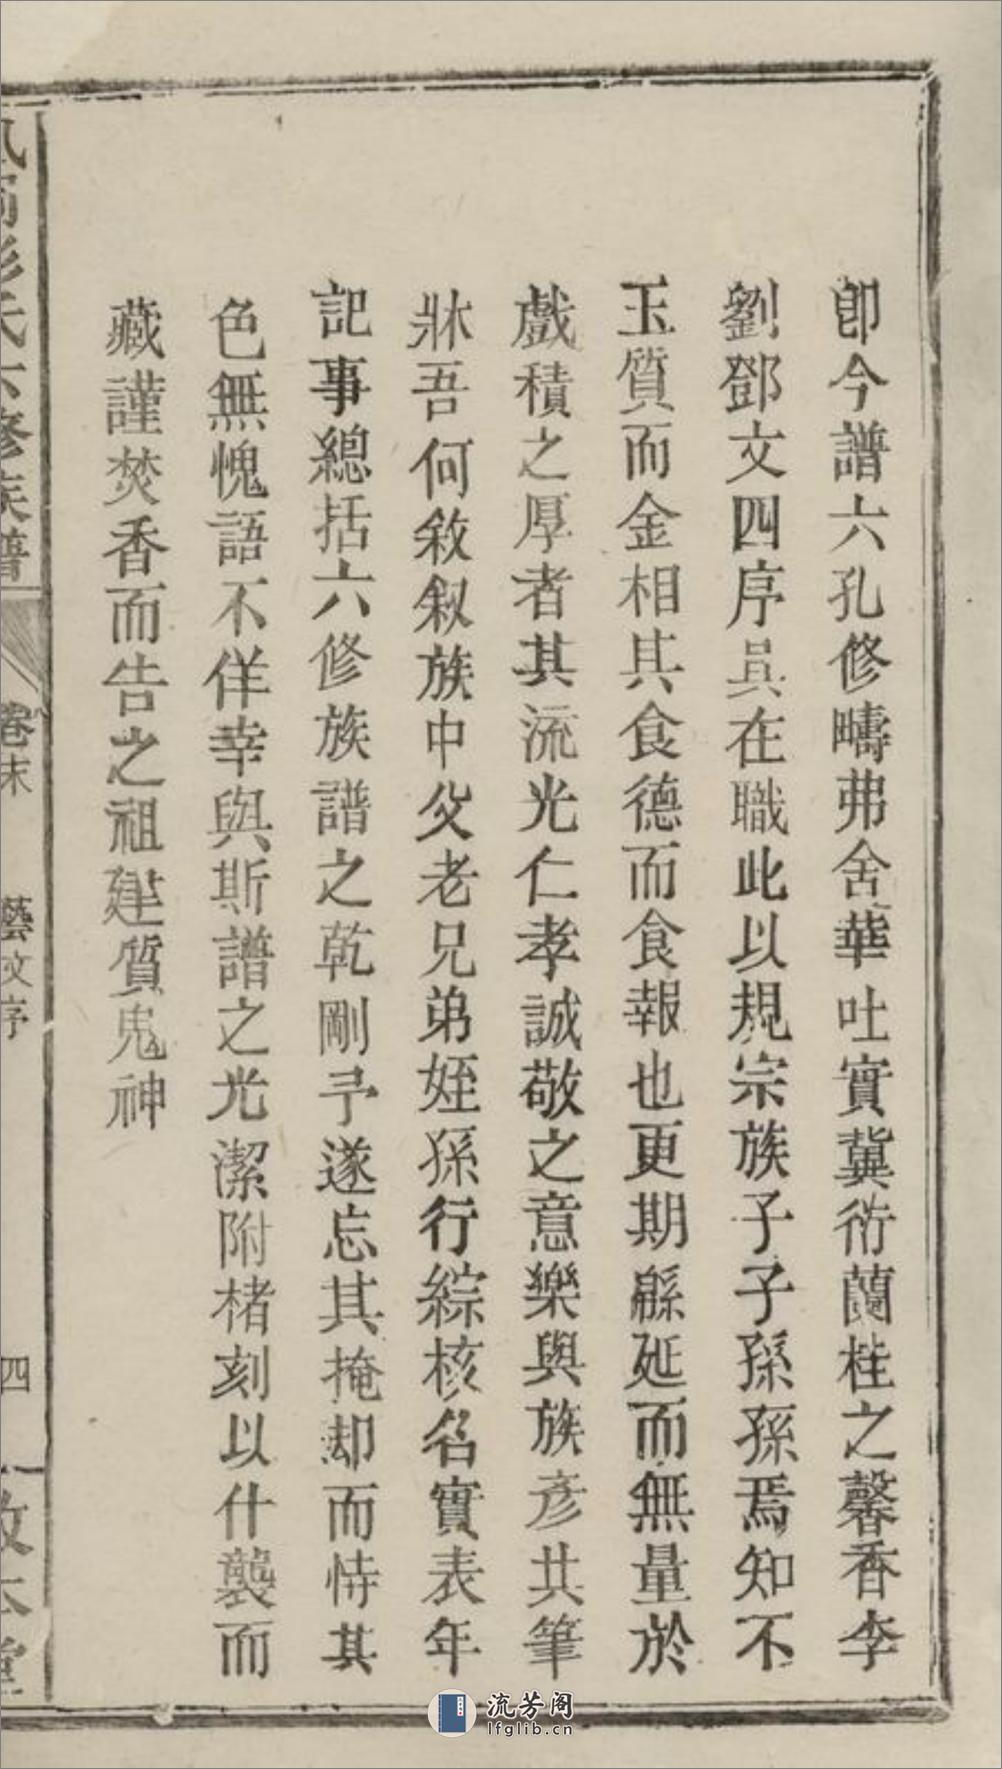 卽今譜六孔修疇弗舍華吐實冀衍蘭桂之馨香李
劉鄧文四序具在職此以規宗族子子孫孫焉知不
玉質而金相其食德而食報也更期緜延而無量於
戲積之厚者其流光仁孝誠敬之意樂與族彥共筆
牀吾何敘叙族中父老兄弟姪孫行綜核名實表年
記事總括六修族譜之乾剛予遂忘其掩却而恃其
色無愧語不佯幸與斯譜之光潔附楮刻以什襲而
藏謹焚香而告之祖建質鬼神
氏六修族譜
卷末
藝文序
四
敦本堂
流芳阁
lfglib.cn